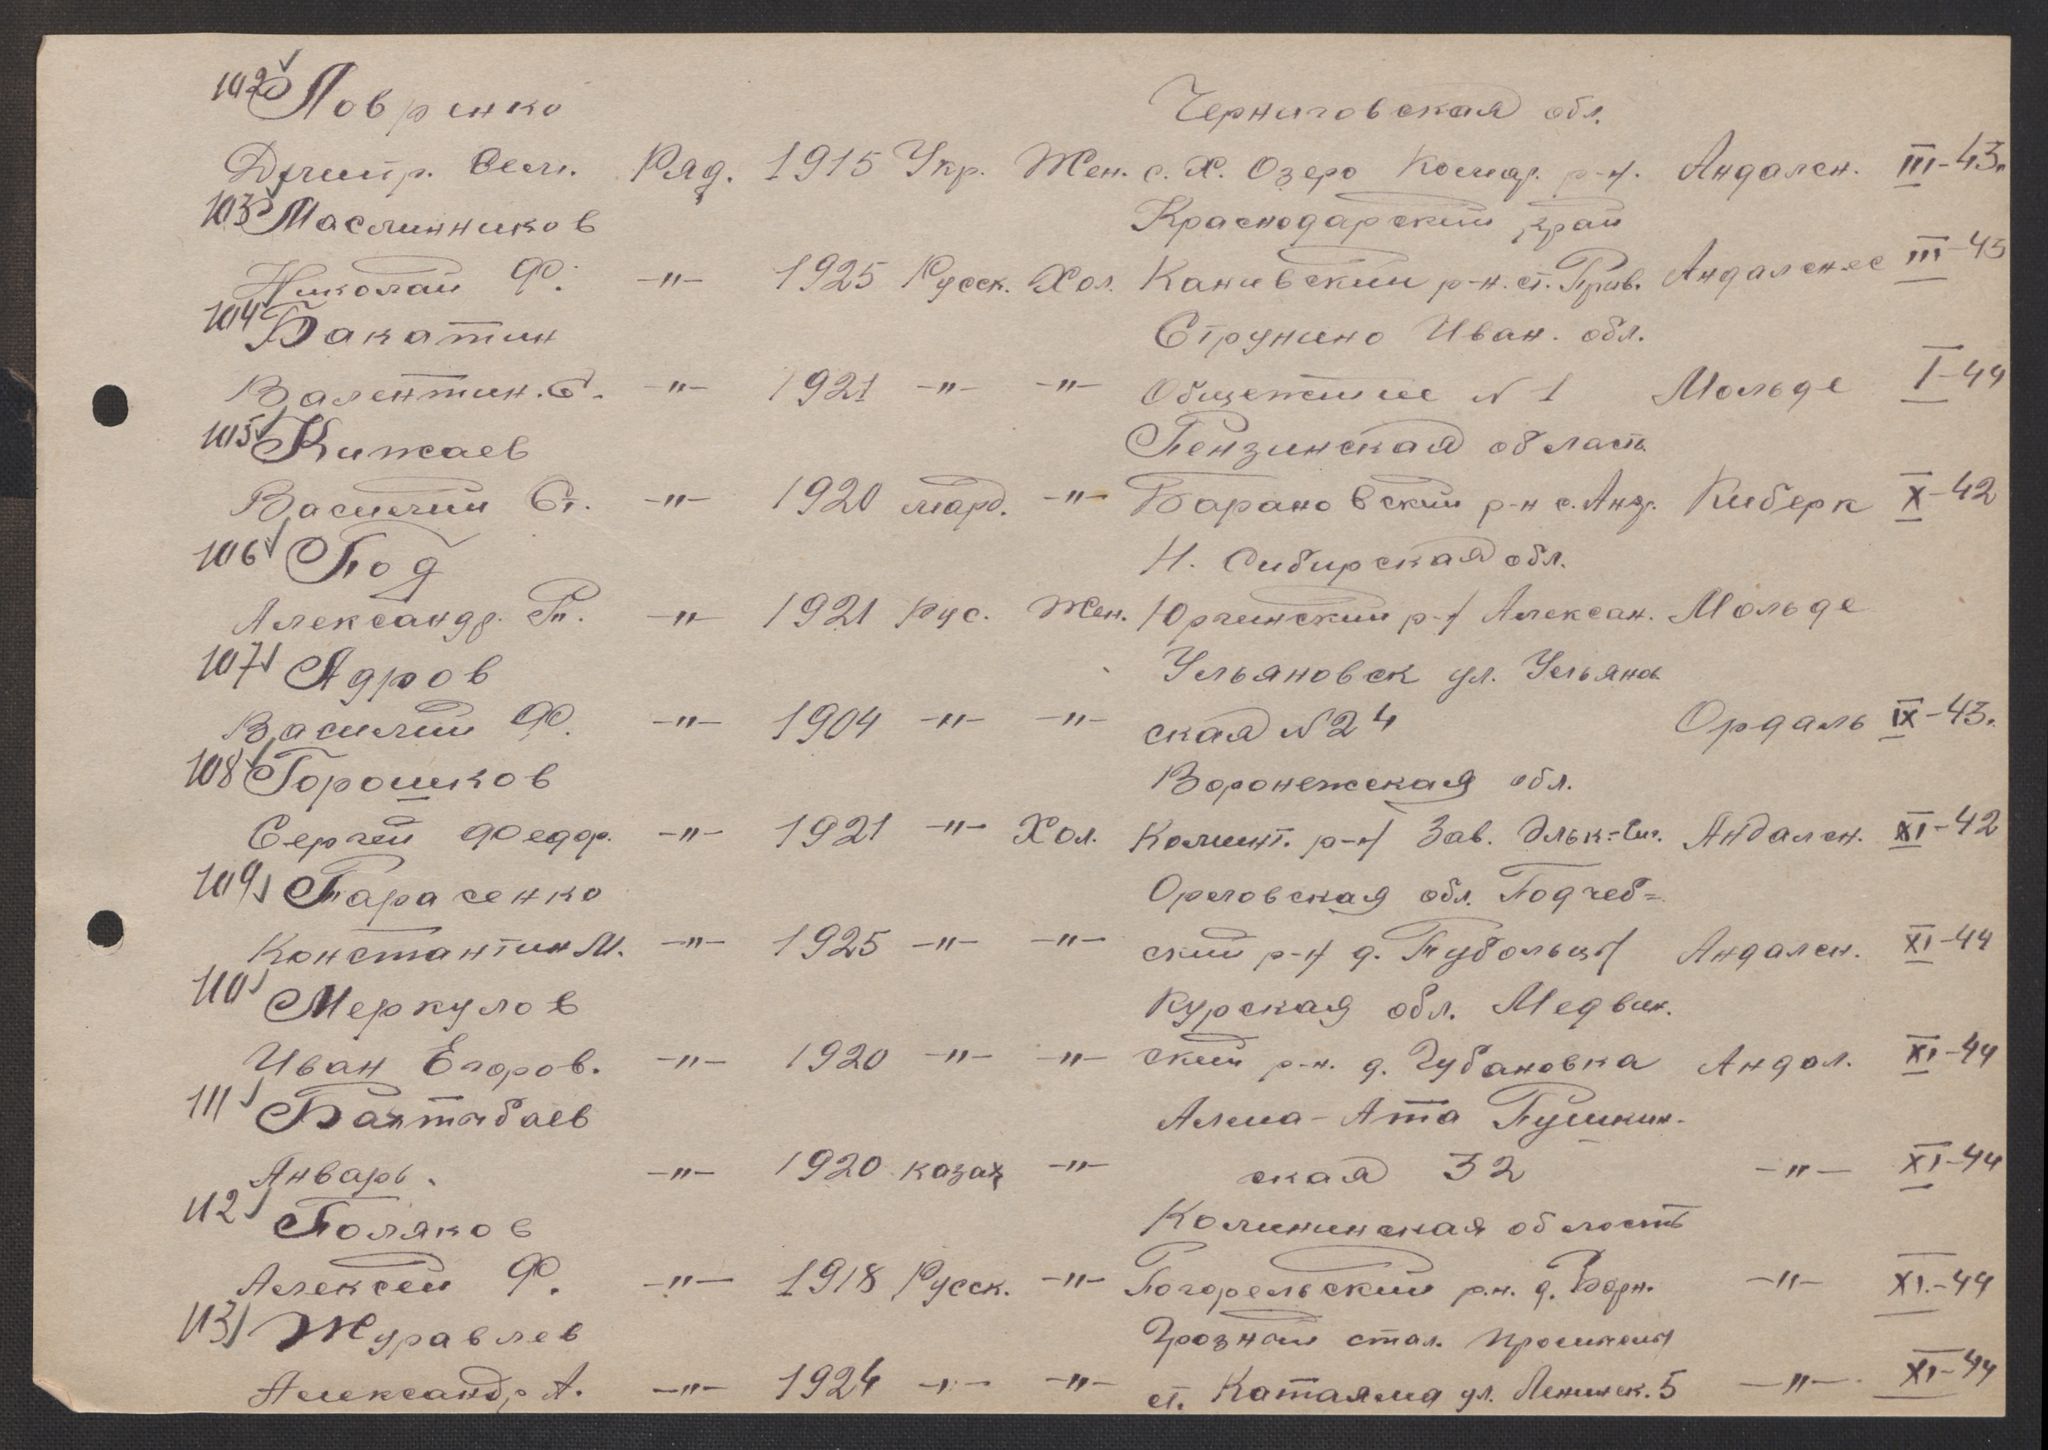 102 Повренко Черниговская обл.
Дмитр. Сем. Ряд. 1915 Укр. Жен. с. Х. Озеро р-н. Андален. III-43г.
103 Маслинников Краснодарский край
Николай Ф. —"— 1925 Русск. Хол. Каневский р-н. ст. Прив. Андаленес III-43
104 Бакатин Струнино Иван. обл.
Валентин. С. —"— 1921 —"— —"— Общежитие N 1 Мольде I-44
105 Кижаев Пензинская область
Василий Ст. —"— 1920 морд. —"— Барановский р-н с. Киберк X-42
106 Под Н. Сибирская обл.
Александр. П. —"— 1921 Рус. Жен. Юргинский р-н Алексан. Мольде
107 Ядров Ульяновск ул. Ульянов
Василий Ф. —"— 1904 —"— —"— ская N 24 Ордаль IX-43г.
108 Горошков Воронежская обл.
Сергей Федор. —"— 1921 —"— Хол. р-н Зав. Андален. XI-42
109 Тарасенко Орловская обл.
Константин М. —"— 1925 —"— —"— ский р-н д. Андален. XI-44
110 Меркулов Курская обл. Медвин.
Иван Егоров. —"— 1920 —"— —"— ский р-н. д. Губановка Андал. XI-44
111 Бахтыбаев Алма-Ата Пушкин-
Январь. —"— 1920 казах —"— ская 32 —"— XI-44
112 Поляков Калининская область
Алексей Ф. —"— 1918 Русск. —"— Погорельский р.н. д. —"— XI.-44
113 Журавлев Грозный стал. промислы
Александр А. —"— 1924 —"— —"— ст. Катаяма ул. Ленинск. 5 —"— XI-44